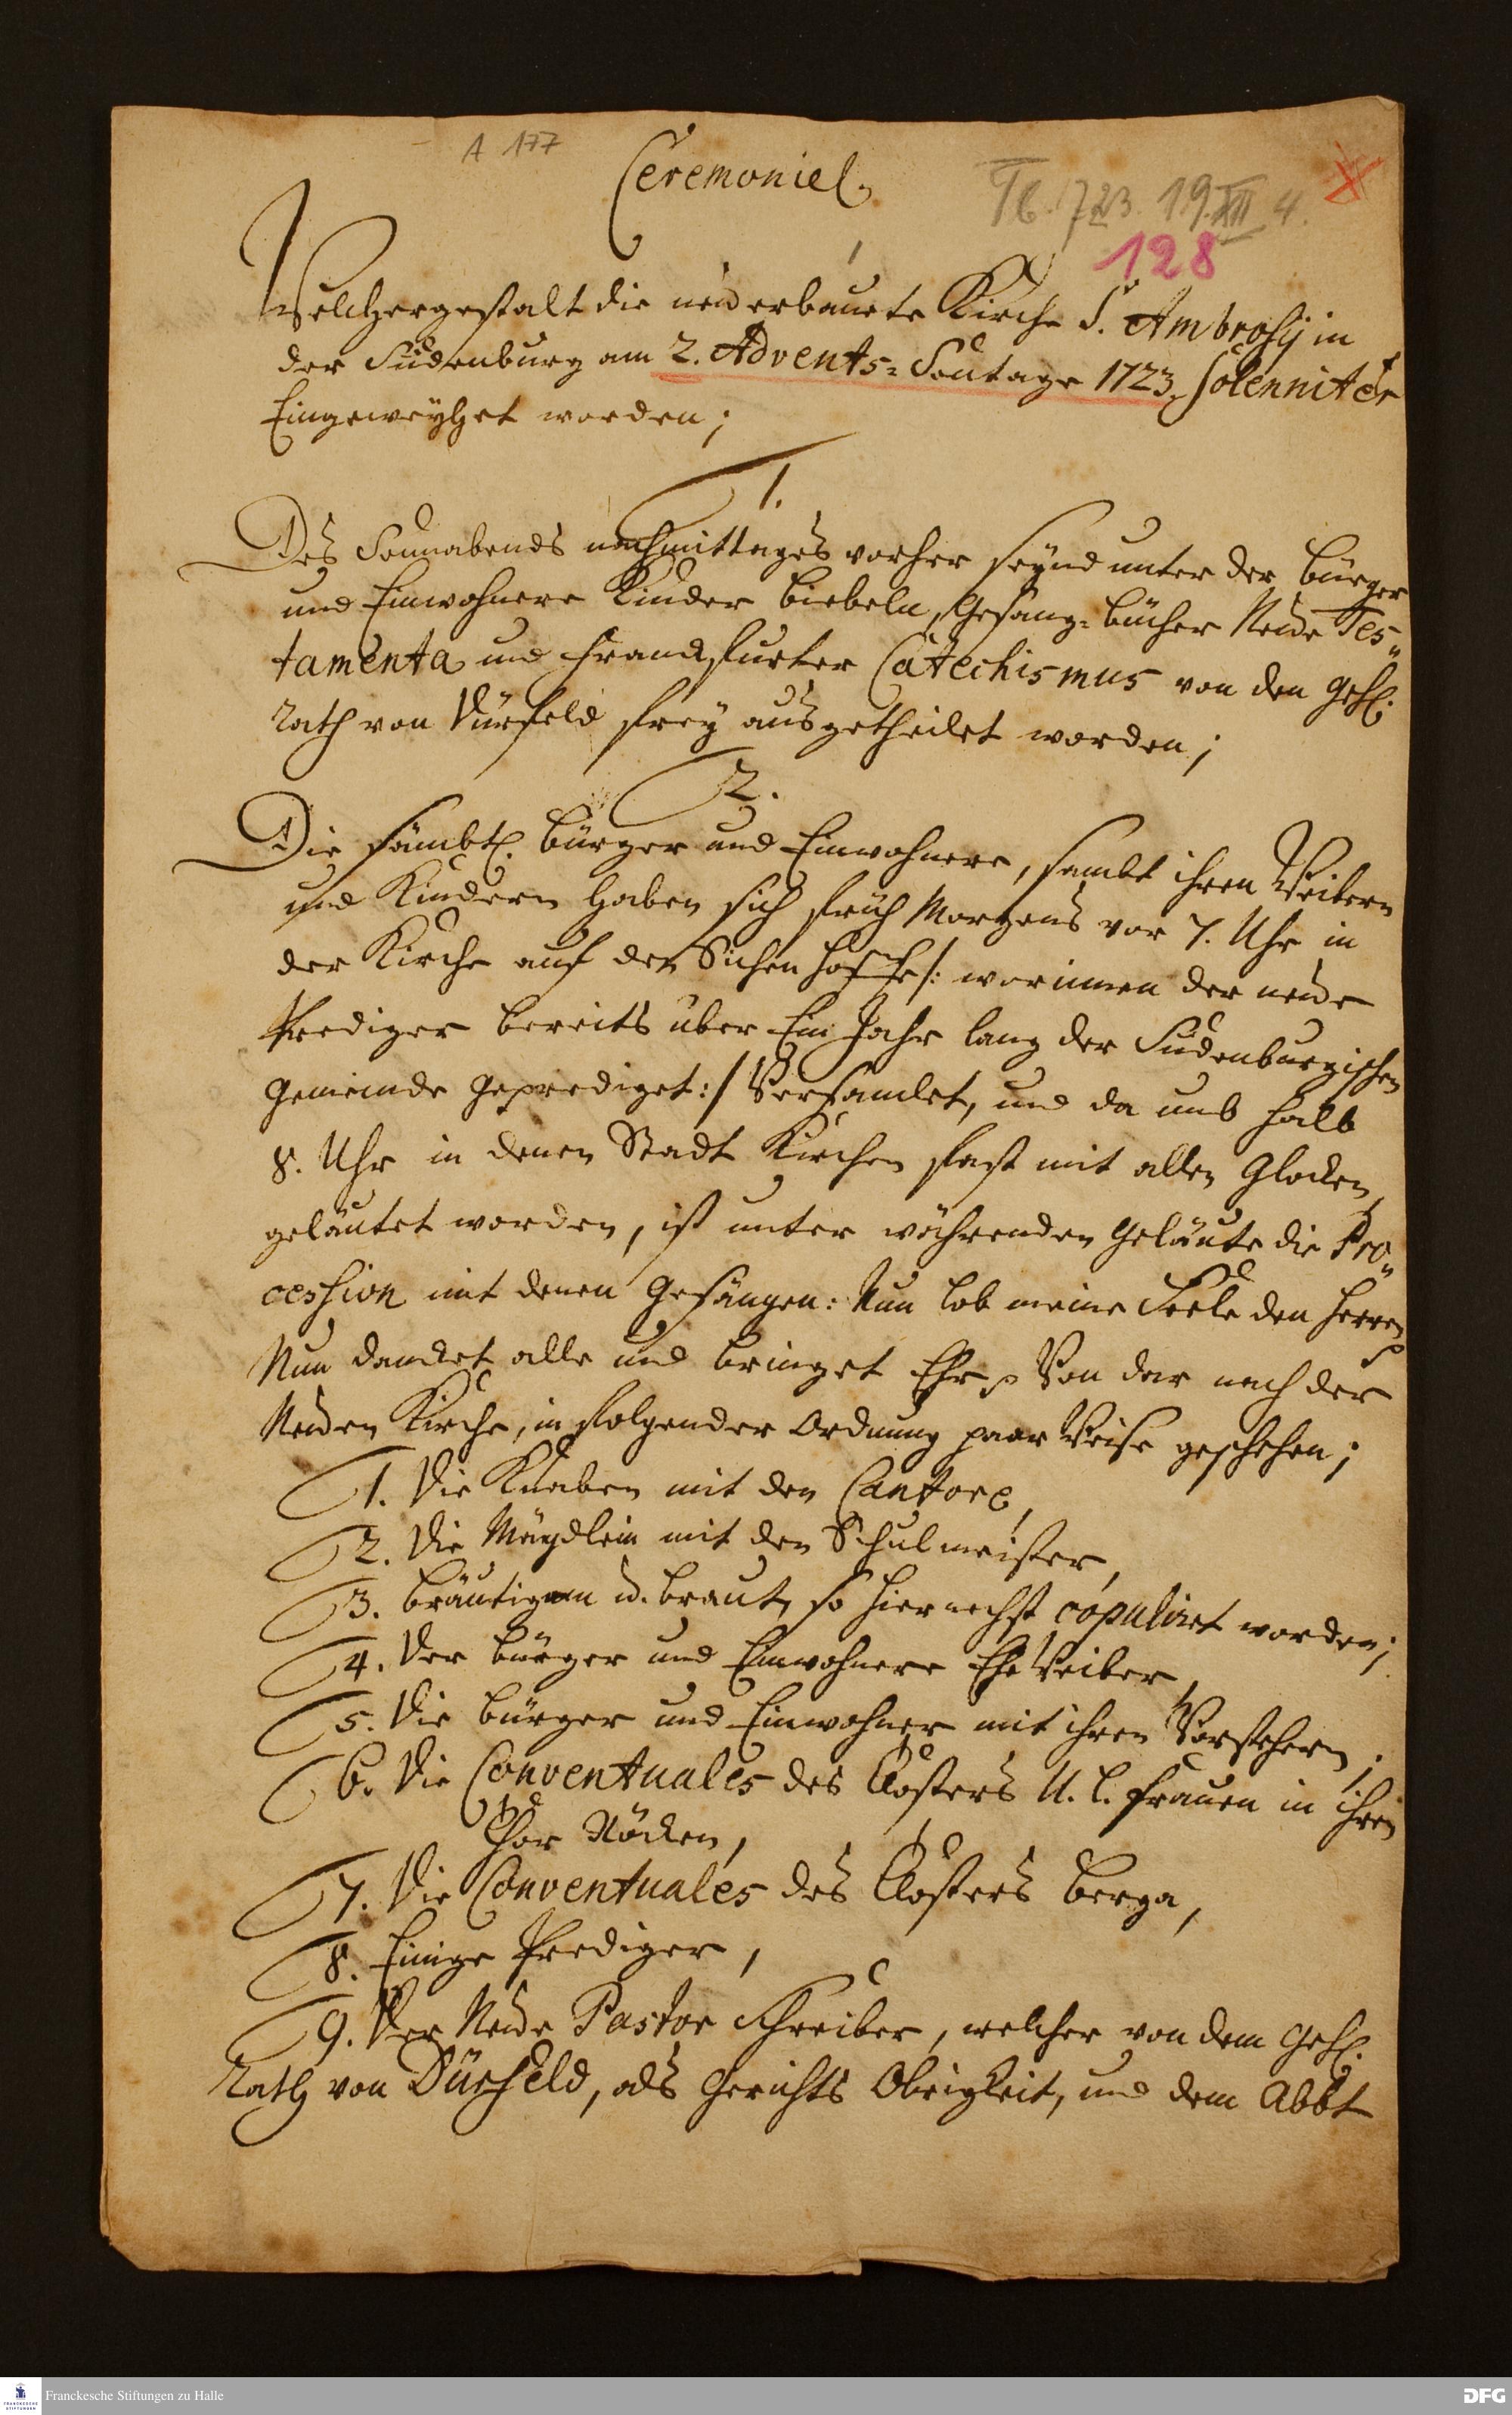 A 177
Ceremoniel,
Tb. 1723. 19. XII 4.
128
Welchergestalt die neuerbauete Kirche S. Ambrosij in
der Sudenburg am 2. Advents-Sontage 1723 solenniter
Eingeweyhet worden;
1.
Des Sonnabends nachmittages vorher seynd unter der Bürger
und Einwohnere Kinder Biebeln, Gesang-Bücher Neue Tes„
tamenta und Franckfurter Catechismus von den Geh.
Rath von Dürfeld frey ausgetheilet worden;
2.
Die sämbtl. Bürger und Einwohnere, sambt ihren Weibern
und Kindern haben sich früh Morgens vor 7. Uhr in
der Kirche auf den Sichen Hoffe /: worinnen der neue
Prediger bereits über Ein Jahr lang der Sudenburgischen
Gemeinde geprediget :/ Versamlet, und da umb halb
8. Uhr in denen Stadt Kirchen fast mit allen Glocken
geläutet worden, ist unter währenden Geläute die Pro„
cession mit denen Gesängen: Nun lob meine Seele den Herren
Nun dancket alle und bringet Ehr p Von dar nach der
Neuen Kirche, in folgender Ordnung paar Weise geschehen;
1. Die Knaben mit den Cantore,
2. Die Mägdlein mit den Schulmeister,
3. Bräutigam u. Braut, so hiernechst copuliret worden;
4. Der Bürger und Einwohnere Ehe Weiber,
5. Die Bürger und Einwohner mit ihren Vorstehern,
6. Die Conventuales des Closters U. L. Frauen in ihren
Chor Röcken,
7. Die Conventuales des Closters Berga,
8. Einige Prediger,
9. Der Neue Pastor Schreiber, welcher von dem Geh.
Rath von Dürfeld, als Gerichts Obrigkeit, und dem Abbt
Franckesche Stiftungen zu Halle
DFG